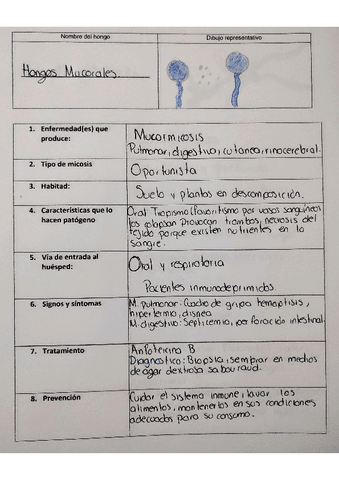 Nombre del hongo
Dibujo representativo
Hongos Mucorales.
1. Enfermedad(es) que produce:
Mucormicosis
Pulmonar, digestiva, cutanea, rinocerebral.
2. Tipo de micosis
Oportunista
3. Habitad:
Suelo y plantas en descomposición.
4. Características que lo hacen patógeno
Oral Tropismo (favoritismo por vasos sanguíneos
los colapsan Provocan trombos, necrosis del
tejido porque existen nutrientes en la
sangre.
5. Vía de entrada al huésped:
Oral y respiratoria
Pacientes inmunodeprimidos.
6. Signos y síntomas
M. Pulmonar: Cuadro de gripa hemoptisis,
hipertermia, disnea
M. digestivo: Septicemia, perforación intestinal.
7. Tratamiento
Anfotericina B
Diagnostico: Biopsia, sembrar en medios
de agar dextrosa sabouraud.
8. Prevención
Cuidar el sistema inmune, lavar los
alimentos, mantenerlos en sus condiciones
adecuadas para su consumo.